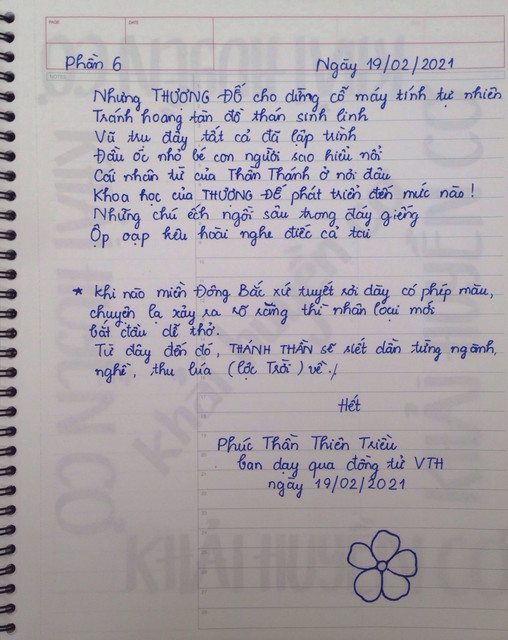 PAGE
DATE
Phần 6
Ngày 19/02/2021
Nhưng THƯỢNG ĐẾ cho dừng cỗ máy tính tự nhiên
Tránh hoang tàn đồ thán sinh linh
Vũ trụ đây tất cả đã lập trình
Đầu óc nhỏ bé con người sao hiểu nổi
Cái nhân từ của Thần Thánh ở nơi đâu
Khoa học của THƯỢNG ĐẾ phát triển đến mức nào!
Những chú ếch ngồi sâu trong đáy giếng
Ộp oạp kêu hoài nghe điếc cả tai
* Khi nào miền Đông Bắc xứ tuyết rơi dãy có phép màu,
chuyện lạ xảy ra rõ ràng thì nhân loại mới
bắt đầu dễ thở.
Từ đây đến đó, THÁNH THẦN sẽ siết dần từng ngành,
nghề, thu lúa (lộc Trời) về./
Hết
Phúc Thần Thiên Triều
ban dạy qua đồng tử VTH
ngày 19/02/2021